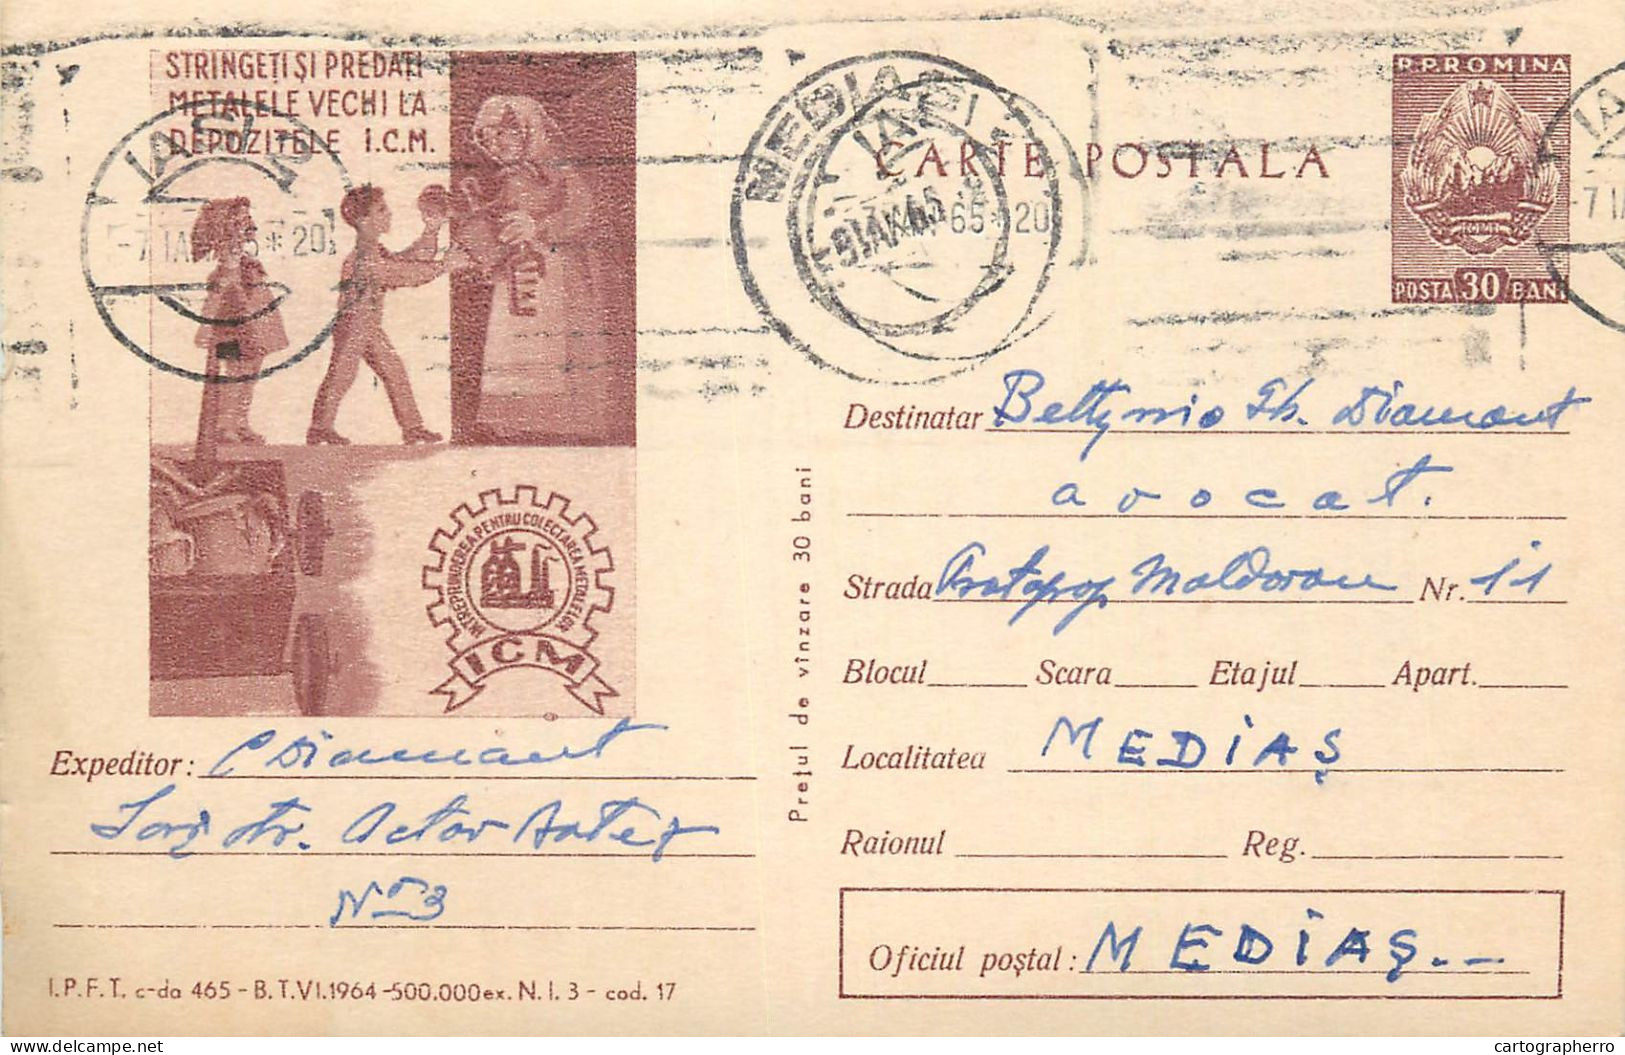 STRINGEȚI ȘI PREDAȚI
METALELE VECHI LA
DEPOZITELE I.C.M.
IAȘI
-7 IAN 65 * 20
MEDIAȘ
IAȘI
9 IAN 65
65 * 20
CARTE POSTALA
R.P.ROMINA
RPR
POSTA 30 BANI
-7 IA
INTREPRINDEREA PENTRU COLECTAREA METALELOR
ICM
Destinatar
Diamant
avocat.
Strada Protopop Moldovan Nr. 11
Blocul Scara Etajul Apart.
Localitatea MEDIAȘ
Raionul Reg.
Oficiul poștal: MEDIAȘ.--
Prețul de vînzare 30 bani
Expeditor: C Diamant
Iași str. Actor
No 3
I.P.F.T. c-da 465 - B.T.VI.1964 -500.000 ex. N.I. 3 - cod. 17
cartographerro